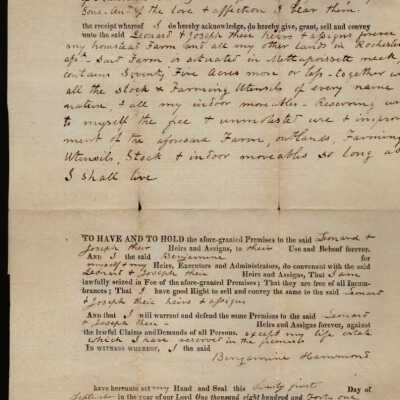 Sons. And of the love & affection I bear them.
the receipt whereof I do hereby acknowledge, do hereby give, grant, sell and convey
unto the said Leonard & Joseph their heirs & assigns forever
my homestead Farm and all my other lands in Rochester
afsd. Said Farm is situated in Mettapoisett neck
contains Seventy Five Acres more or less - together with
all the stock & Farming Utensils of every name
nature, & all my indoor moveables - Reserving
to myself the fee & unmolested use & improve
ment of the aforesaid Farm, outlands, Farming
Utensils, Stock & indoor moveables so long as
I shall live
TO HAVE AND TO HOLD the afore-granted Premises to the said Leonard &
Joseph their Heirs and Assigns, to their Use and Behoof forever.
AND I the said Benjamine for
myself & my Heirs, Executors and Administrators, do covenant with the said
Leonard & Joseph their Heirs and Assigns, That I am
lawfully seized in Fee of the afore-granted Premises; That they are free of all Incum-
brances; That I have good Right to sell and convey the same to the said Leonard
& Joseph their heirs & assigns
And that I will warrant and defend the same Premises to the said Leonard
& Joseph their - Heirs and Assigns forever, against
the lawful Claims and Demands of all Persons. except my life estate
which I have reserved in the premises
IN WITNESS WHEREOF, I the said
Benjamine Hammond
have hereunto set my Hand and Seal this thirty first Day of
in the year of our Lord One thousand eight hundred and Forty one